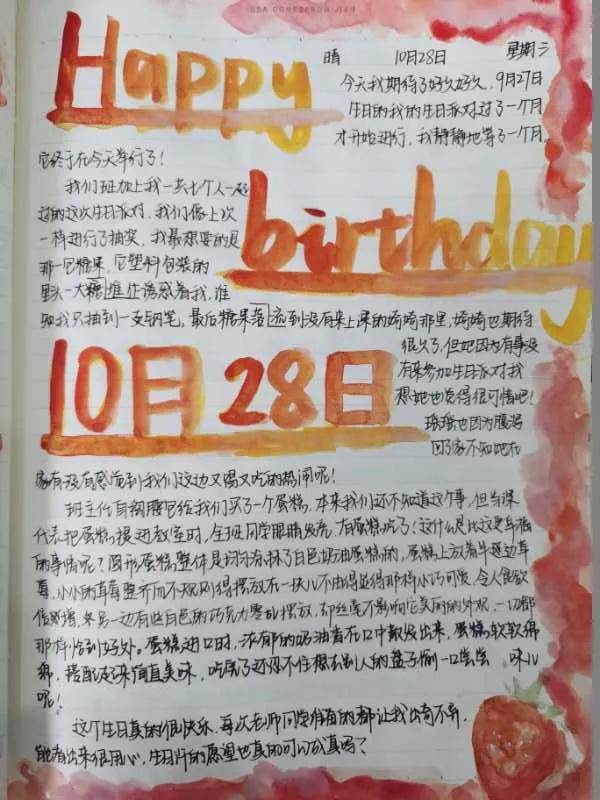 Happy
晴 10月28日 星期三
今天我期待了好久好久,9月27日
生日的我的生日派对过了一个月
才开始进行,我静静地等了一个月,
它终于在今天举行了!
我们班加上我一共七个人一起
过的这次生日派对,我们像上次
一样进行了抽奖,我最想要的是
那一包糖果,它塑料包装的
里头一大糖堆让诱惑着我,谁
birthday
知我只抽到一支钢笔,最后糖果落到没有来上课的婷婷那里,婷婷也期待
很久了,但她因为有事没
有来参加生日派对我
想她也觉得很可惜吧!
10月28日
瑶瑶也因为腹泻
回了家不知她在
家有没有感觉到我们这边又喝又吃的热闹呢!
班主任自掏腰包给我们买了一个蛋糕,本来我们还不知道这个事,但当课
代表把蛋糕提进教室时,全班同学眼睛发亮,有蛋糕吃了!这什么是比这更幸福
的事情呢?圆形蛋糕整体是抹了白色奶油蛋糕的,蛋糕上放着半边草
莓,小小的草莓整齐而不规则得摆放在一块儿不由得显得那样小巧可爱,令人食欲
倍增,另一边有些白色的巧克力零乱摆放,却丝毫不影响它美丽的外观,一切都
那样恰到好处。蛋糕进口时,浓郁的奶油香在口中散发出来,蛋糕软软绵
绵,搭配起来简直美味,吃完了还忍不住想去别人的盘子偷一口尝尝 味儿
呢!
这个生日真的很快乐,每次老师同学准备的都让我出奇不异,
能看出来很用心,生日许的愿望也真的可以成真吗?